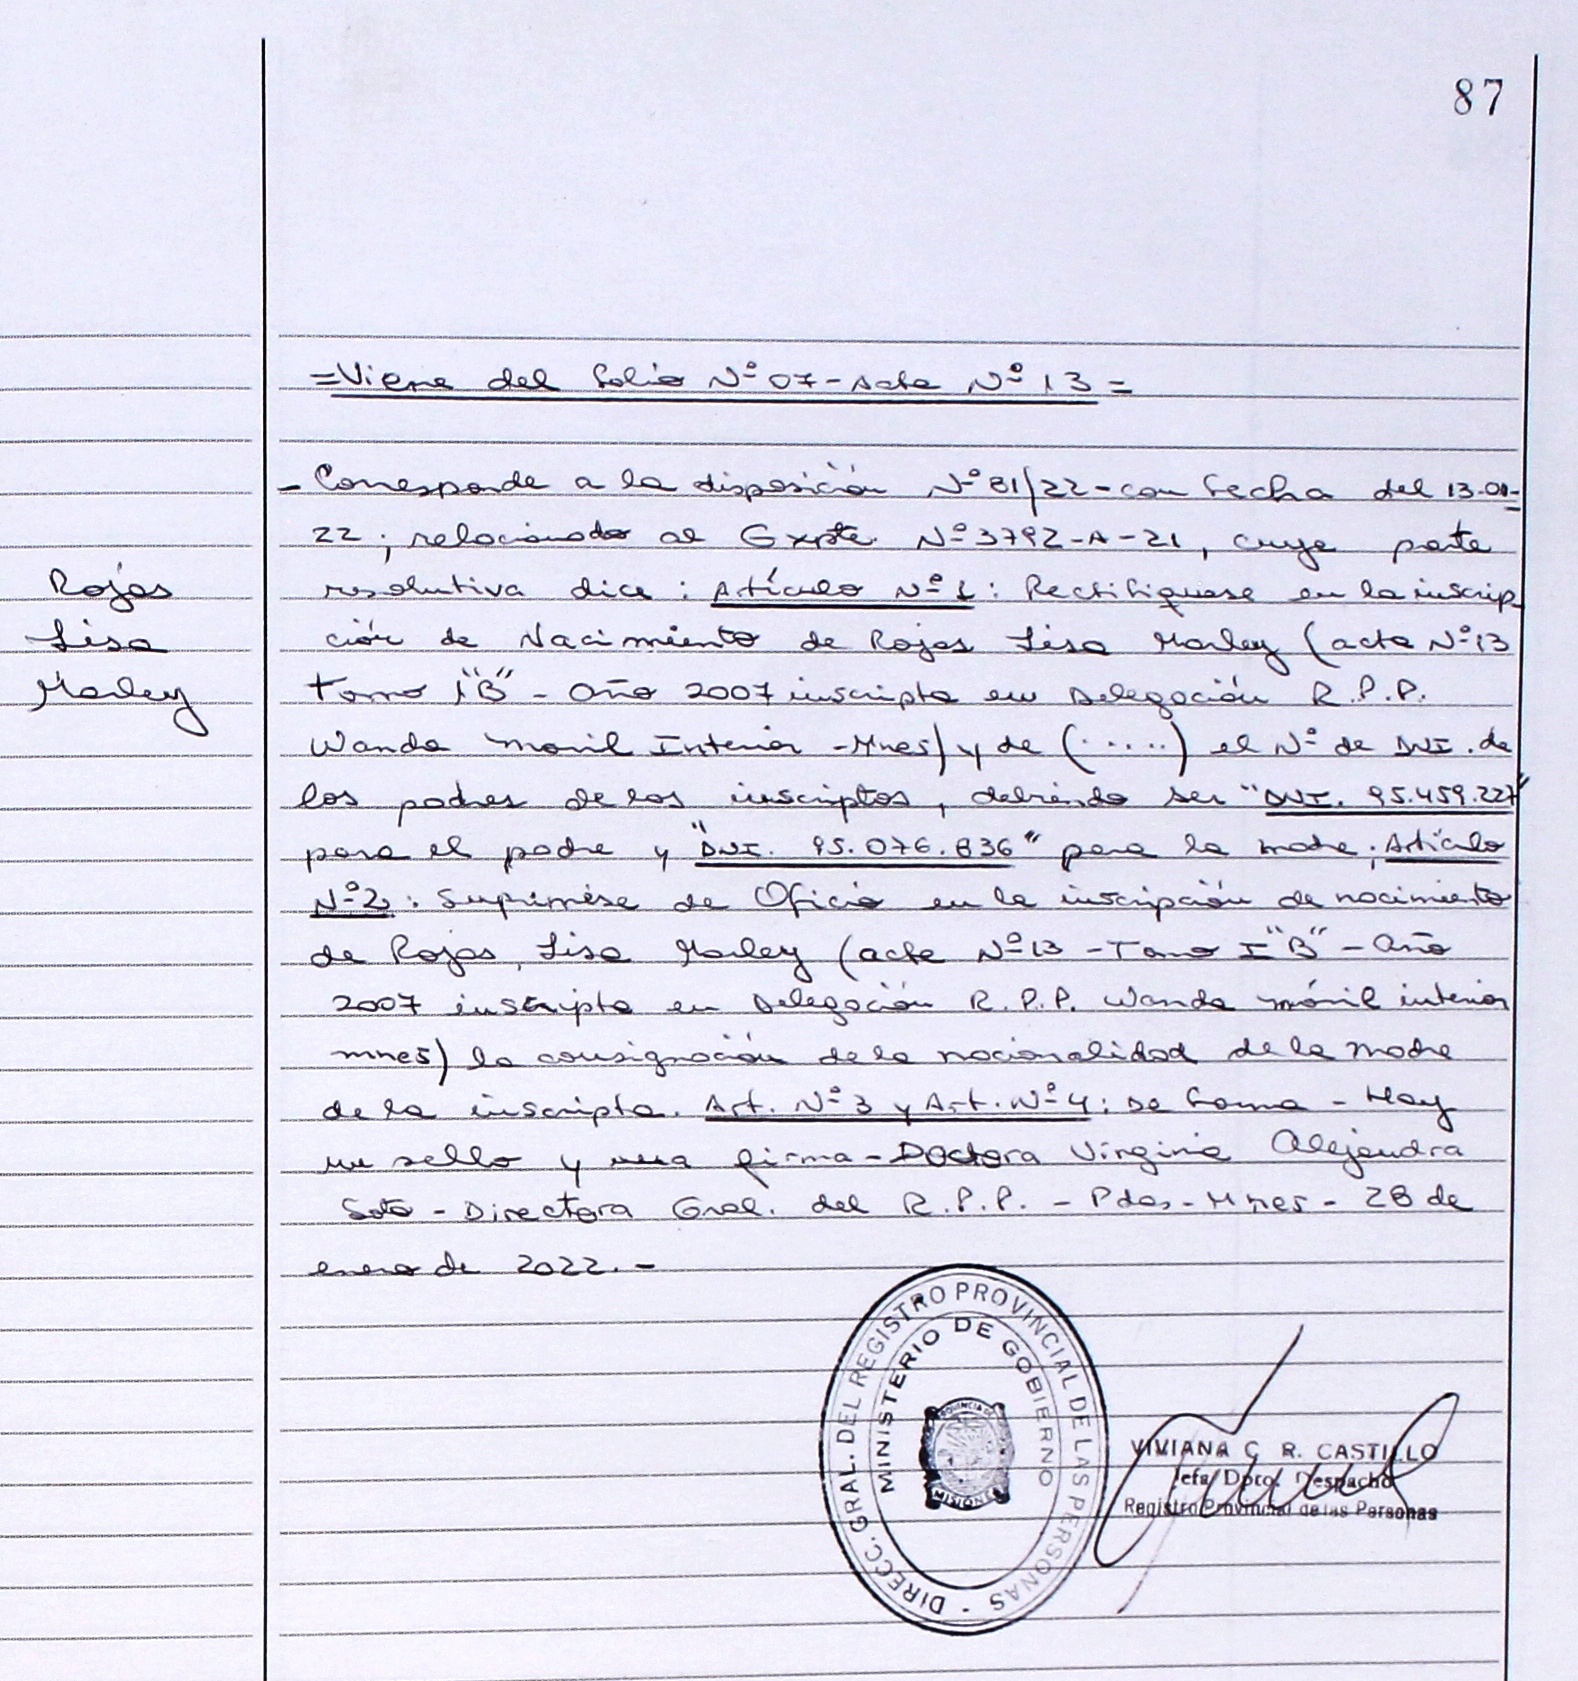 87
=Viene del Folio Nº 07-Acta Nº 13=
- Corresponde a la disposición Nº 81/22-con fecha del 13-01-
22; relacionado al Expte. Nº 3792-A-21, cuya parte
resolutiva dice: Artículo Nº 1: Rectifiquese en la inscrip-
ción de Nacimiento de Rojas Lisa Marley (acta Nº 13
Tomo I "B" - Año 2007 inscripta en Delegación R.P.P.
Wanda Movil Interior -Mnes) y de (.....) el Nº de DNI. de
los padres de los inscriptos, debiendo ser "DNI. 95.459.227"
para el padre y "DNI. 95.076.836" para la madre; Artículo
Nº 2: Suprimése de Oficio en la inscripción de nacimiento
de Rojas, Lisa Marley (acta Nº 13 - Tomo I "B" - Año
2007 inscripta en Delegación R.P.P. Wanda móvil interior
mnes) la consignación de la nacionalidad de la madre
de la inscripta. Art. Nº 3 y Art. Nº 4: De forma - Hay
un sello y una firma - Doctora Virginia Alejandra
Soto - Directora Gral. del R.P.P. - Pdas - Mnes - 28 de
enero de 2022.-
Rojas
Lisa
Marley
DIRECC. GRAL. DEL REGISTRO PROVINCIAL DE LAS PERSONAS -
MINISTERIO DE GOBIERNO
PROVINCIA DE
MISIONES
VIVIANA C. R. CASTILLO
Jefa Dpto. Despacho
Registro Provincial de las Personas